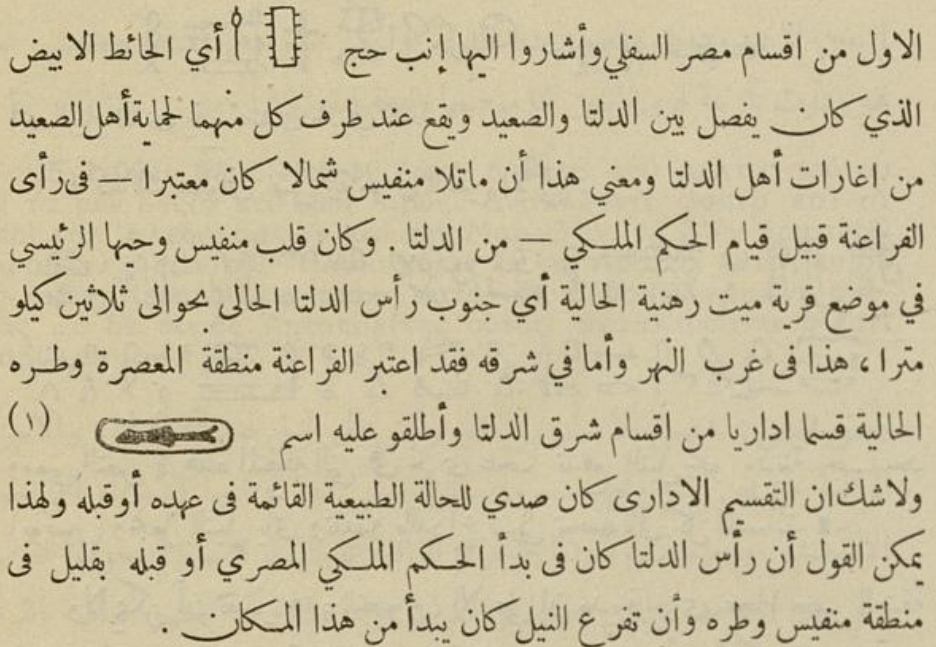 الاول من اقسام مصر السفلي وأشاروا اليها إنب حج أي الحائط الابيض
الذي كان يفصل بين الدلتا والصعيد ويقع عند طرف كل منهما لحماية أهل الصعيد
من اغارات أهل الدلتا ومعني هذا أن ماتلا منفيس شمالا كان معتبرا — فى رأى
الفراعنة قبيل قيام الحكم الملكي — من الدلتا . وكان قلب منفيس وحيها الرئيسي
في موضع قرية ميت رهنية الحالية أي جنوب رأس الدلتا الحالى بحوالى ثلاثين كيلو
مترا ، هذا فى غرب النهر وأما في شرقه فقد اعتبر الفراعنة منطقة المعصرة وطره
الحالية قسما اداريا من اقسام شرق الدلتا وأطلقو عليه اسم (١)
ولاشك ان التقسيم الادارى كان صدي للحالة الطبيعية القائمة فى عهده أوقبله ولهذا
يمكن القول أن رأس الدلتا كان فى بدأ الحكم الملكي المصري أو قبله بقليل فى
منطقة منفيس وطره وأن تفرع النيل كان يبدأ من هذا المكان .